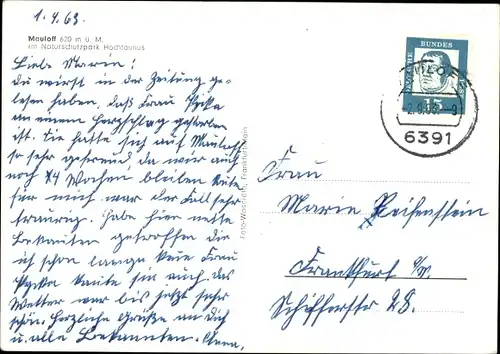 1.4.63.
Mauloff 620 m ü. M.
im Naturschutzpark Hochtaunus
Liebe Marie!
Du wirst in der Zeitung ge-
lesen haben, daß Frau
an einem Herzschlag gestorben
ist. Sie hatte sich auf Mauloff
so sehr gefreut da wir auch
noch 14 Wochen bleiben
für mich war der Fall sehr
traurig. Habe hier nette
Bekannten getroffen die
ich schon lange kein Frau
sie auch das
Wetter war bis jetzt sehr
schön. Herzliche Grüße an Dich
u. alle Bekannten. Anna.
DEUTSCHE BUNDES
15
6391
Frau
Marie Reifenstein
Frankfurt a/M
Schifferstr 28.